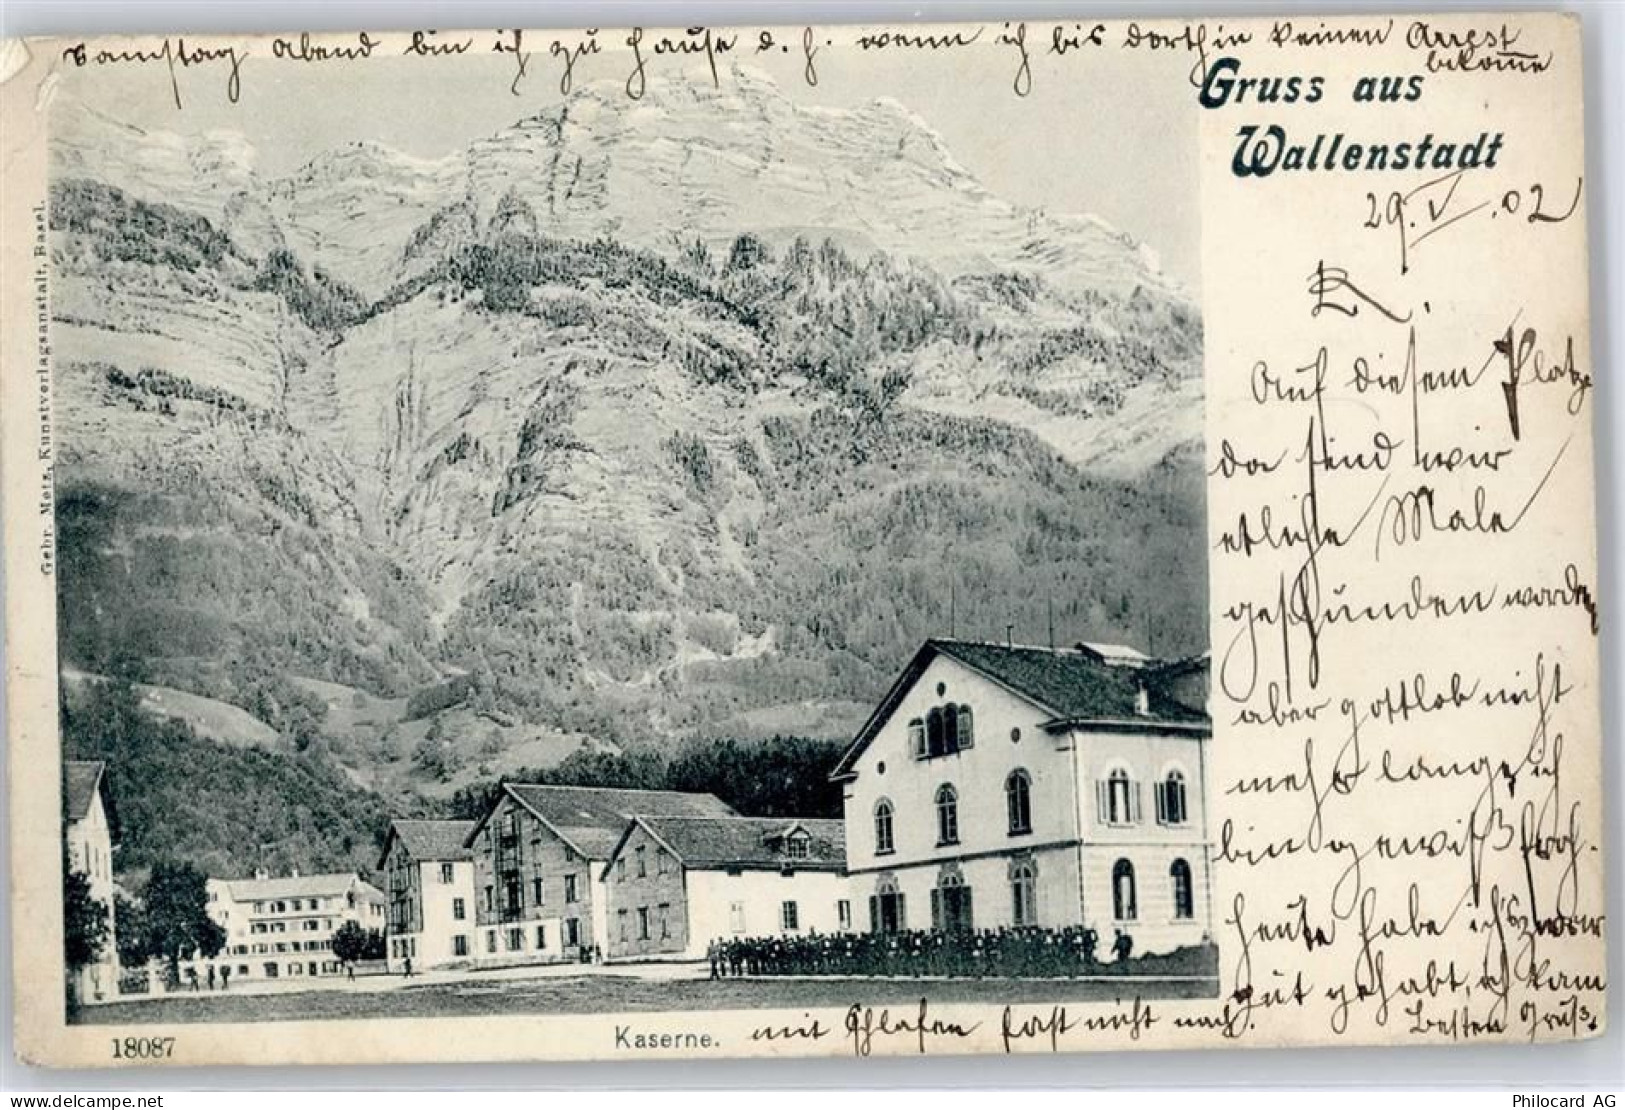 Samstag Abend bin ich zu Hause d. h. wenn ich bis dorthin keinen Arrest
bekomme
Gruss aus
Wallenstadt
29. V. 02
Auf diesem Platze
da sind wir
etliche Male
geschunden worden
aber gottlob nicht
mehr lange, ich
bin gewiß froh.
Heute habe ich's zwar
gut gehabt, ich kam
mit Schlafen fast nicht nach.
Besten Gruß.
Gebr. Metz, Kunstverlagsanstalt, Basel.
Kaserne.
18087
delcampe.net
Philocard AG